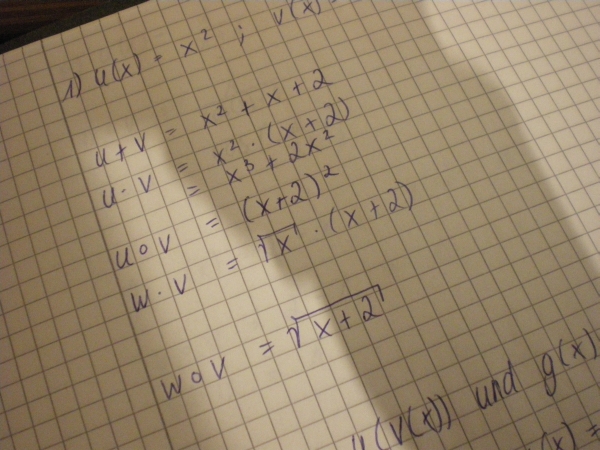 1) u(x) = x² ; v(x) =
u+v = x² + x + 2
u·v = x² · (x+2)
= x³ + 2x²
u∘v = (x+2)²
w·v = √x · (x+2)
w∘v = √x+2
u(v(x)) und g(x)
(x) =